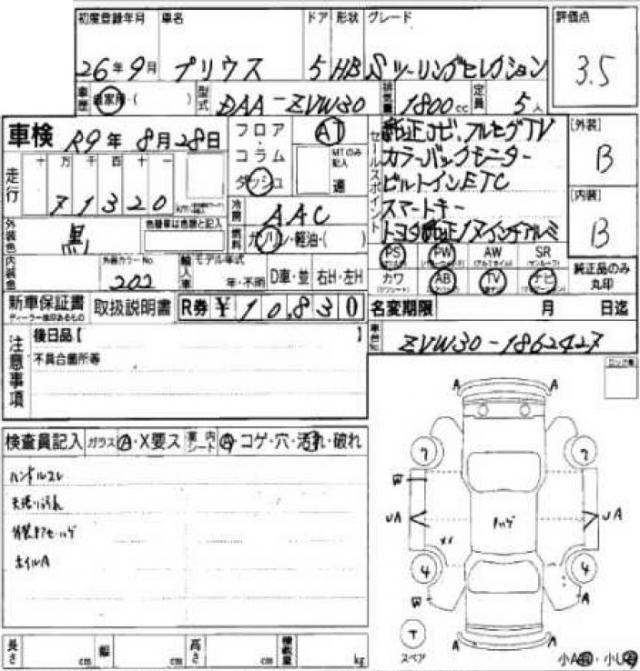 初度登録年月 車名 ドア 形状 グレード 評価点
26年9月 プリウス 5 HB Sツーリングセレクション 3.5
車歴 自家用・( ) 型式 DAA-ZVW30 排気量 1800cc 定員 5人
車検 R9年8月28日 フロア・コラム・ダッシュ AT MTのみ記入 速
セールスポイント
純正ナビ、フルセグTV
カラーバックモニター
ビルトインETC
スマートキー
トヨタ純正17インチアルミ
[外装] B
[内装] B
走行 十万千百十一
71320
冷房 AAC
燃料 ガソリン・軽油・( )
外装色 黒 色替車は色替と記入
内装色 外装カラーNo 202
輸入車 モデル年式 年・不明 D車・並 右H・左H
PS PW AW SR
カワ AB TV ナビ
純正品のみ丸印
新車保証書 取扱説明書 R券 ¥10,830
ディーラー捺印あるもの
名変期限 月 日迄
車台No. ZVW30-1862427
注意事項
後日品【 】
不具合箇所等
検査員記入 ガラス A・X要ス 車内シート A・コゲ・穴・汚れ・破れ
ハンドルスレ
天張り汚れ
ホイルA
A A
7 7
W
UA UA
ハゲ
XX
4 4
W A
A A
T
スペア
長さ cm 幅 cm 高さ cm 積載量 kg